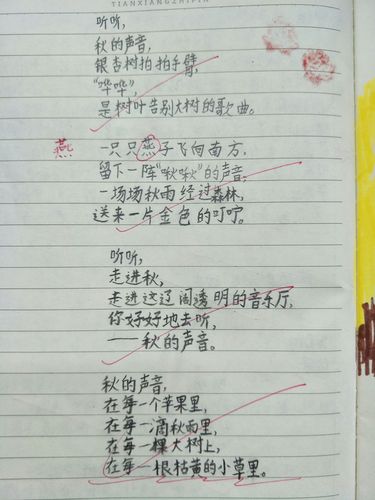 TIANXIANGZHIPIN
听听,
秋的声音,
银杏树拍拍手臂,
“哗哗”,
是树叶告别大树的歌曲。
燕
一只只燕子飞向南方,
留下一阵“啾啾”的声音,
一场场秋雨经过森林,
送来一片金色的叮咛。
听听,
走进秋,
走进这辽阔透明的音乐厅,
你好好地去听,
——秋的声音。
秋的声音,
在每一个苹果里,
在每一滴秋雨里,
在每一棵大树上,
在每一根枯黄的小草里。